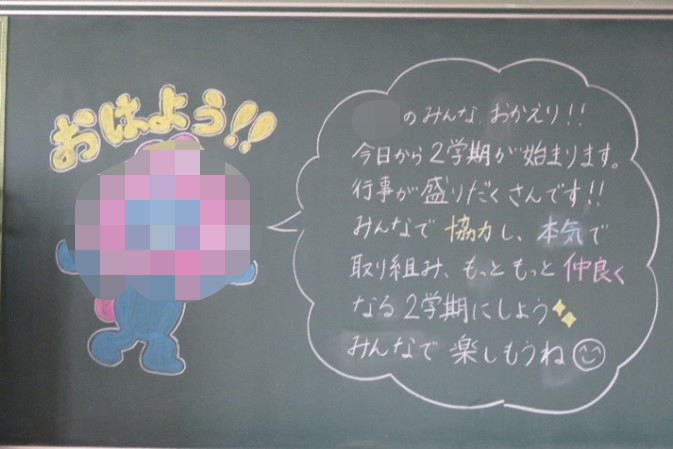 おはよう!!
のみんな、おかえり!!
今日から2学期が始まります。
行事が盛りだくさんです!!
みんなで協力し、本気で
取り組み、もっともっと仲良く
なる2学期にしよう
みんなで楽しもうね